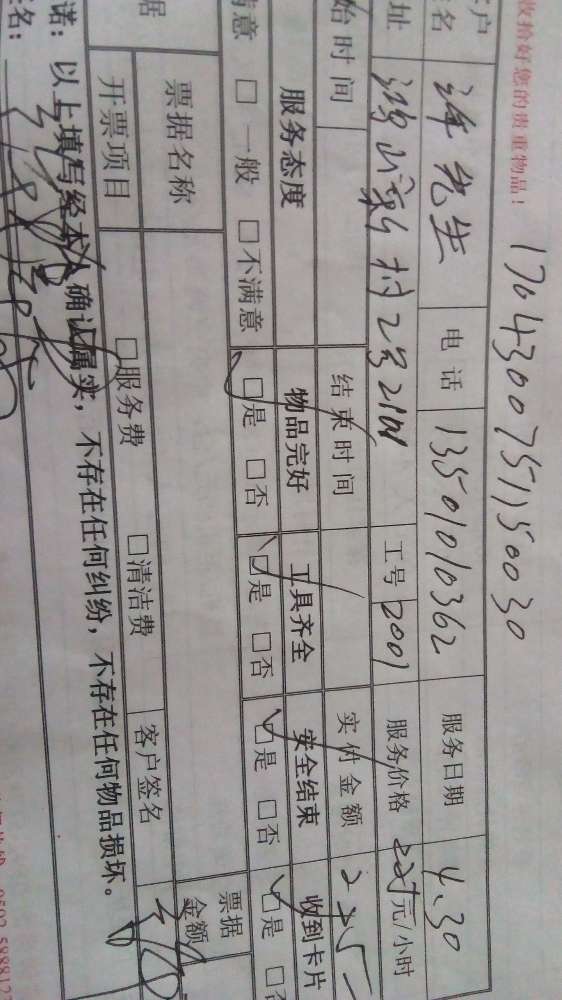 收拾好您的贵重物品！
1704300751150030
先生 电话 13501010362 服务日期 4.30
址 村2号2101 工号 2001 服务价格 元/小时
始时间 结束时间 实付金额 225
服务态度 物品完好 工具齐全 安全结束 收到卡片
满意 □ 一般 □ 不满意 □是 □否 □是 □否 □是 □否 □是 □否
据 票据名称 票据金额
开票项目 □服务费 □清洁费 客户签名
诺：以上填写经本人确认属实，不存在任何纠纷，不存在任何物品损坏。
名：